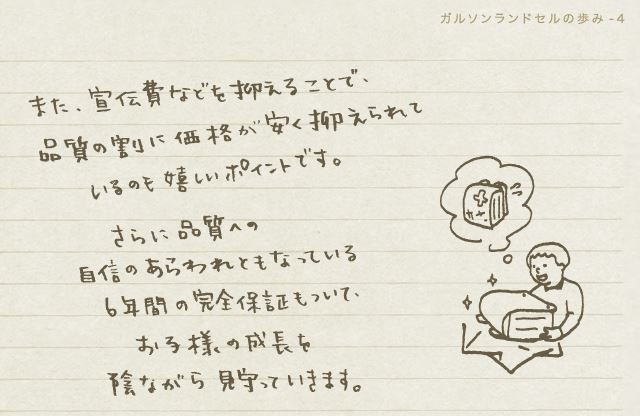 ガルソンランドセルの歩み -4
また、宣伝費などを抑えることで、
品質の割に価格が安く抑えられて
いるのも嬉しいポイントです。
さらに品質への
自信のあらわれともなっている
6年間の完全保証もついて、
お子様の成長を
陰ながら見守っていきます。